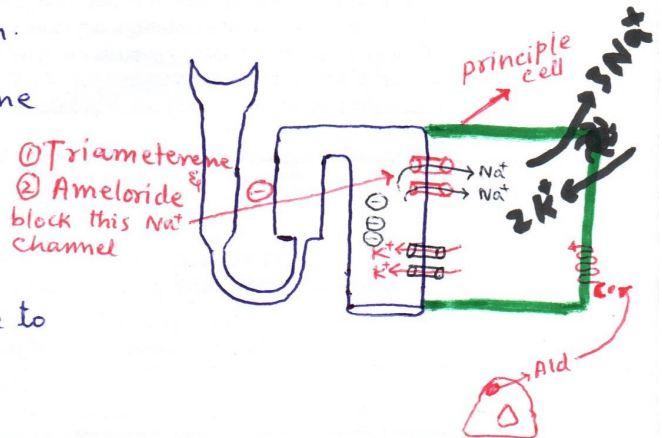 n.
ne
① Triameterene
&
② Ameloride
block this Na+
channel
e to
principle
cell
3 Na+
2K+
Na+
Na+
K+
K+
Ald